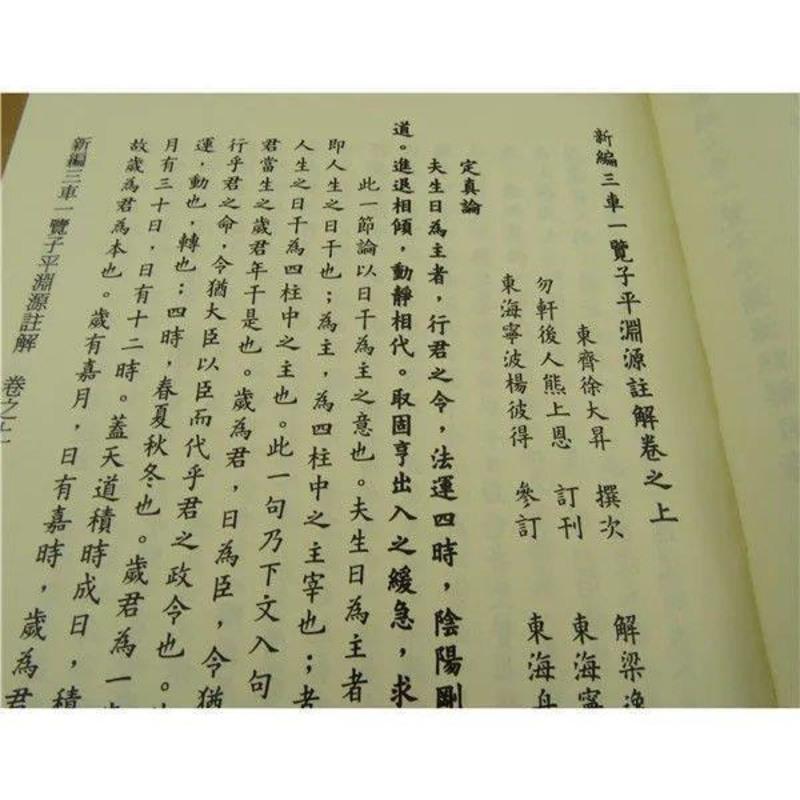 新編三車一覽子平淵源註解卷之上
東齊徐大昇 撰次 解梁逸
勿軒後人熊上恩 訂刊 東海寧
東海寧波楊彼得 參訂 東海舟
定真論
夫生日為主者，行君之令，法運四時，陰陽剛
道。進退相傾，動靜相代。取固亨出入之緩急，求
此一節論以日干為主之意也。夫生日為主者
即人生之日干也；為主，為四柱中之主宰也；者
人生之日干為四柱中之主也。此一句乃下文入句
君當生之歲君年干是也。歲為君，日為臣，今猶
行乎君之命，令猶大臣以臣而代乎君之政令也。
運，動也，轉也；四時，春夏秋冬也。歲君為一
月有三十日，日有十二時。蓋天道積時成日，積
故歲為君為本也。歲有嘉月，日有嘉時，歲為君
新編三車一覽子平淵源註解 卷之上